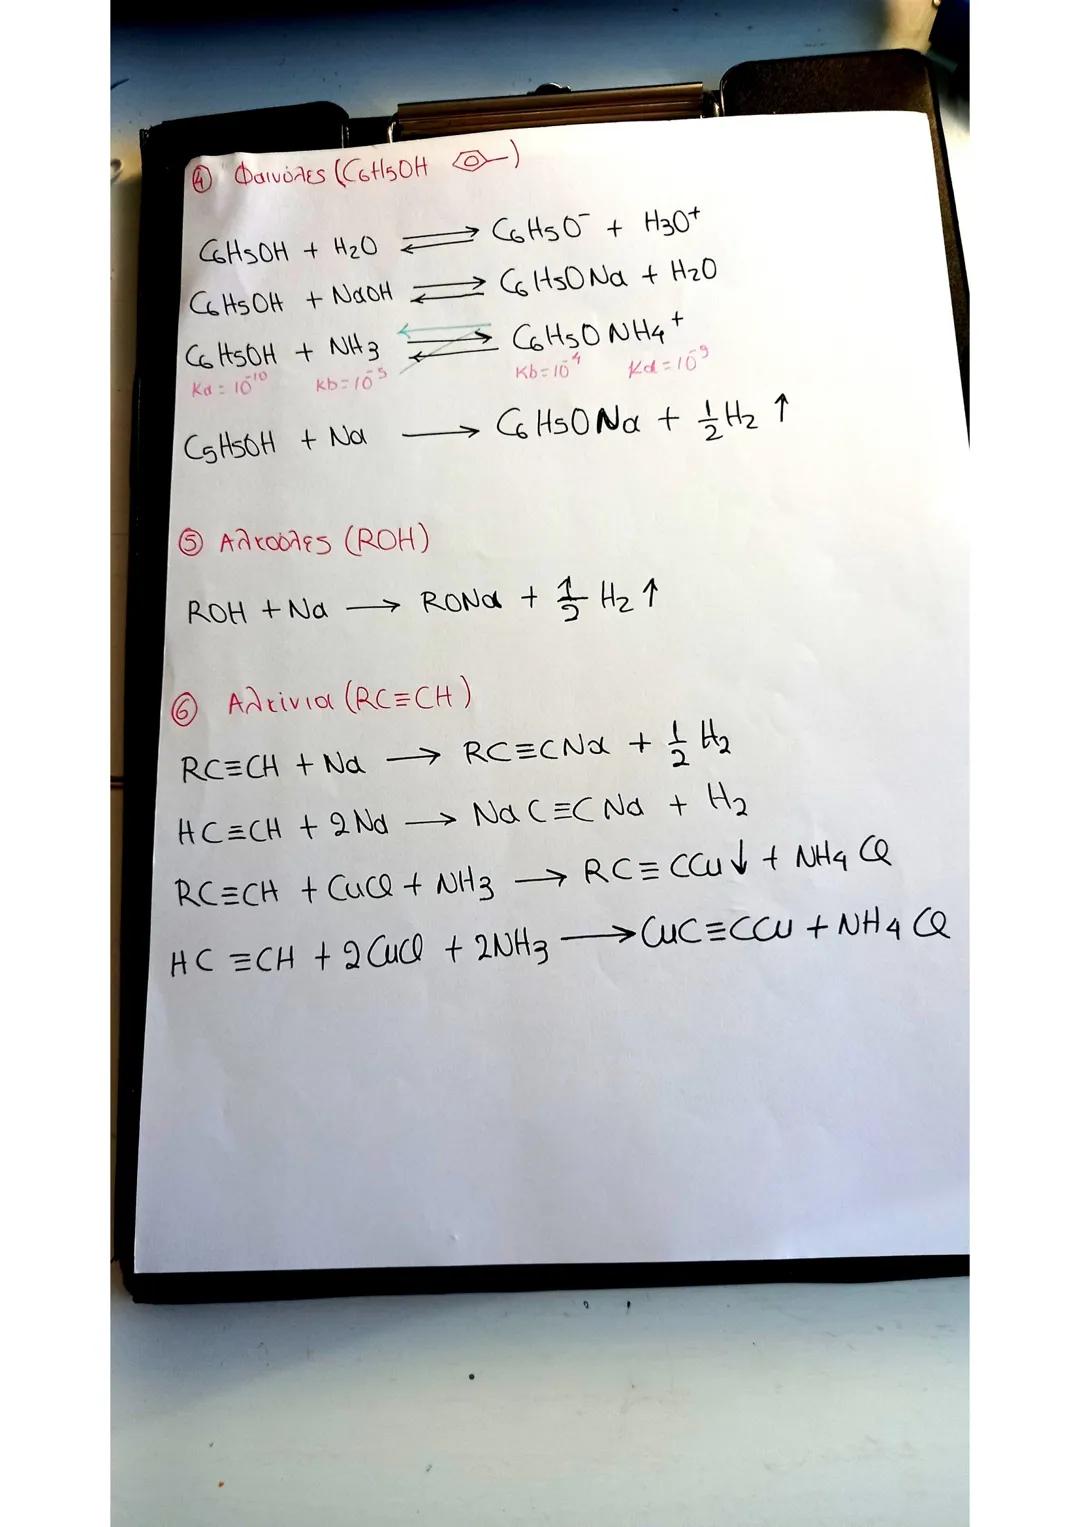 ④ Φαινόλες (C6H5OH )
C6H5OH + H2O ⇌ C6H5O⁻ + H3O⁺
C6H5OH + NaOH ⇌ C6H5ONa + H2O
C6H5OH + NH3 ⇌ C6H5O NH4⁺
Ka = 10⁻¹⁰ Kb = 10⁻⁵ Kb = 10⁻⁴ Ka = 10⁻⁹
C5H5OH + Na → C6H5ONa + 1/2 H2 ↑
⑤ Αλκοόλες (ROH)
ROH + Na → RONa + 1/2 H2 ↑
⑥ Αλκίνια (RC≡CH)
RC≡CH + Na → RC≡CNa + 1/2 H2
HC≡CH + 2Na → NaC≡CNa + H2
RC≡CH + CuCl + NH3 → RC≡CCu↓ + NH4Cl
HC≡CH + 2CuCl + 2NH3 → CuC≡CCu + NH4Cl